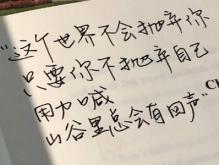 "这个世界不会抛弃你
只要你不抛弃自己
用力喊
山谷里总会有回声"